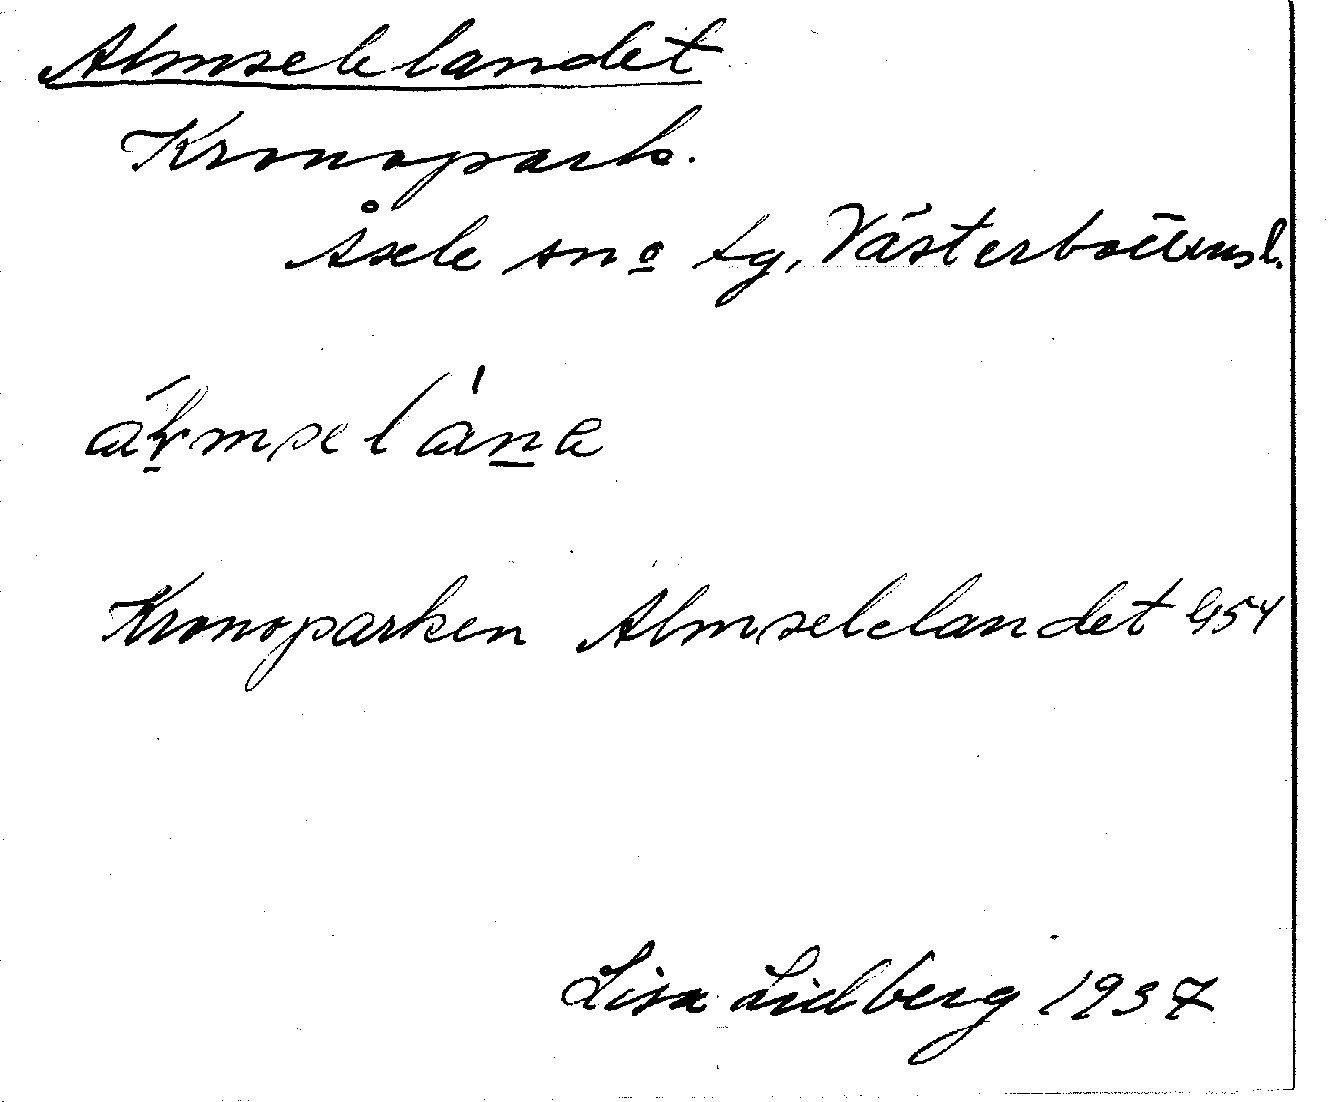 Almselelandet
Kronopark.
Åsele sn o tg, Västerbottens l.
Kronoparken Almselelandet G54
Lisa Lidberg 1937